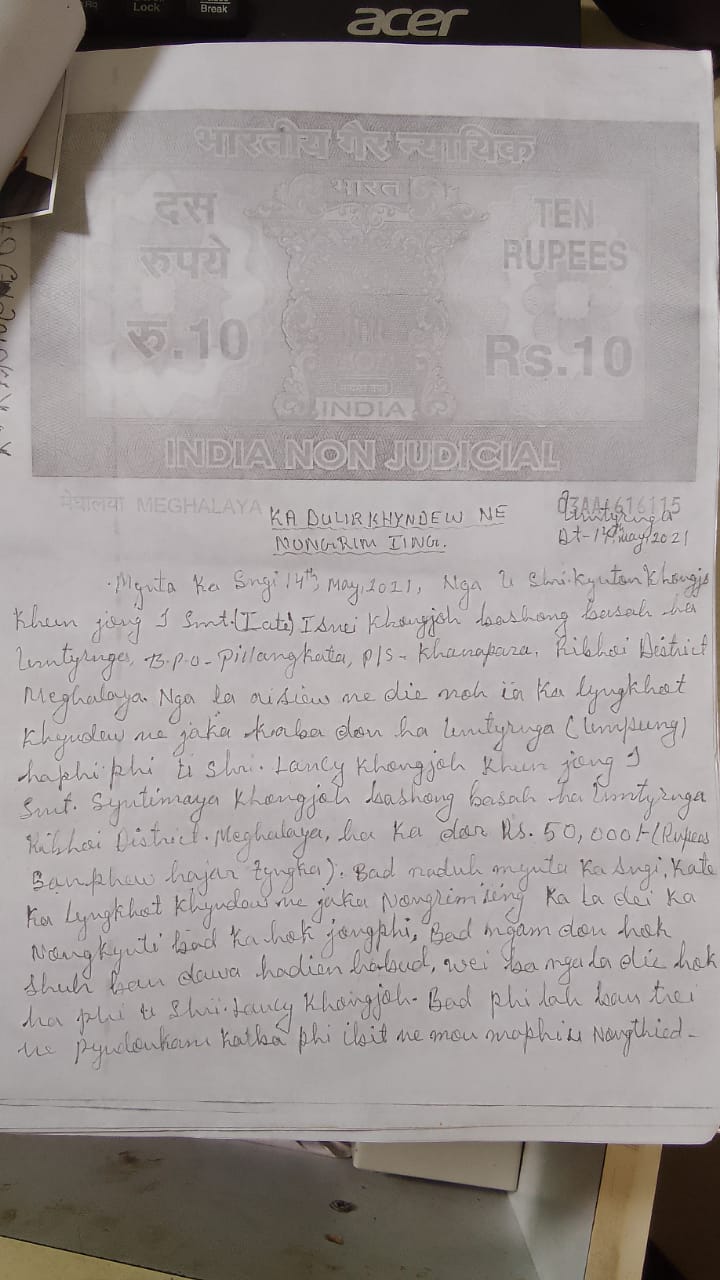 Lock
Break
acer
भारतीय गैर न्यायिक
भारत
दस
रुपये
रु.10
TEN
RUPEES
Rs.10
INDIA
INDIA NON JUDICIAL
मेघालया MEGHALAYA
03AA 616115
KA DULIR KHYNDEW NE
NONGRIM IING.
Umtyrnga
Dt-14th, may, 2021
Mynta Ka Sngi 14th, May, 2021, Nga U Shri. Kyuton Khongjo
Khun jong I Smt. (Late) Isnei Khongjoh bashong basah ha
Umtyrnga, B.P.O- Pillangkata, P/S- Khanapara, Ribhoi District
Meghalaya. Nga la aisiew ne die noh ïa Ka lyngkhot
Khyndew ne jaka kaba don ha Umtyrnga (Umpung)
haphi phi U Shri. Lancy Khongjoh Khun jong I
Smt. Syntimaya Khongjoh bashong basah ha Umtyrnga
Ribhoi District. Meghalaya, ha Ka dor Rs. 50,000/- (Rupees
Sanphew hajar tyngka). Bad naduh mynta Ka sngi, Kata
Ka Lyngkhot Khyndew ne jaka Nongrim ïeng Ka la dei Ka
Nongkynti bad Ka hok jongphi, Bad ngam don hok
Shuh ban dawa hadien habud, wei ba nga la die hok
ha phi U Shri. Lancy Khongjoh. Bad phi lah ban trei
ne pyndonkam Katba phi ibit ne mon maphi u Nongthied-